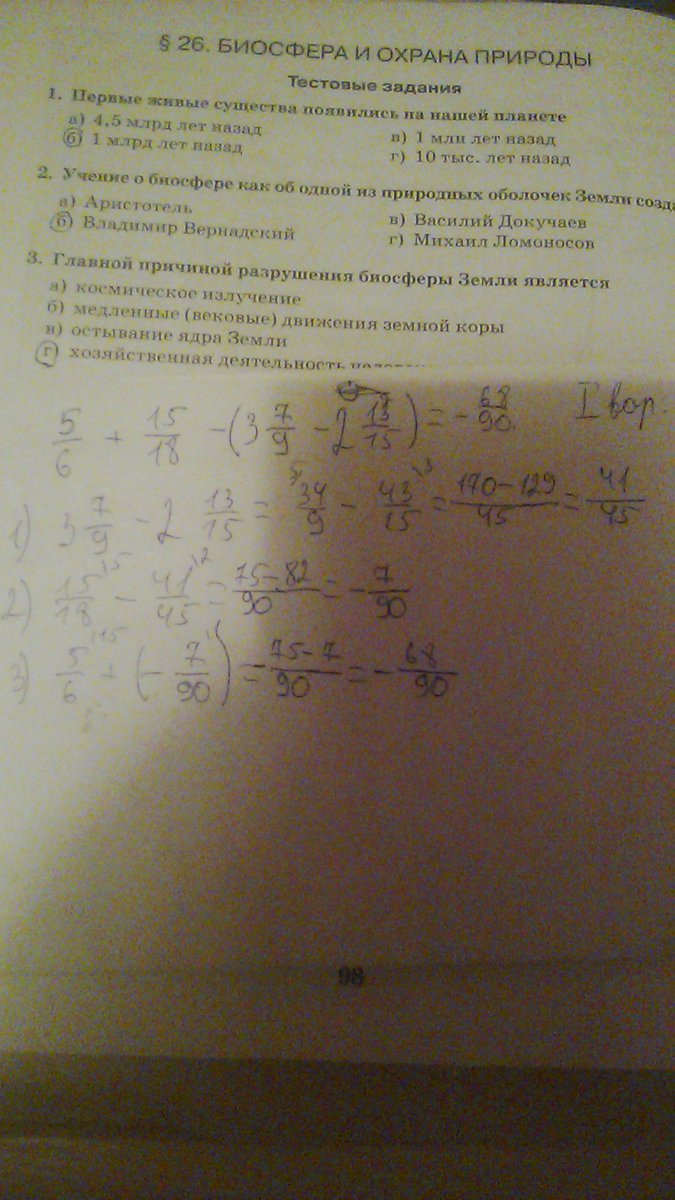 § 26. БИОСФЕРА И ОХРАНА ПРИРОДЫ
Тестовые задания
1. Первые живые существа появились на нашей планете
а) 4,5 млрд лет назад
б) 1 млрд лет назад
в) 1 млн лет назад
г) 10 тыс. лет назад
2. Учение о биосфере как об одной из природных оболочек Земли созда
а) Аристотель
б) Владимир Вернадский
в) Василий Докучаев
г) Михаил Ломоносов
3. Главной причиной разрушения биосферы Земли является
а) космическое излучение
б) медленные (вековые) движения земной коры
в) остывание ядра Земли
г) хозяйственная деятельность
5/6 + 15/18 - (3 7/9 - 2 13/15) = - 68/90. I вар.
1) 3 7/9 - 2 13/15 = 34/9 - 43/15 = 170-129/45 = 41/45
2) 15/18 - 41/45 = 75-82/90 = - 7/90
3) 5/6 + (- 7/90) = 75-7/90 = - 68/90
96